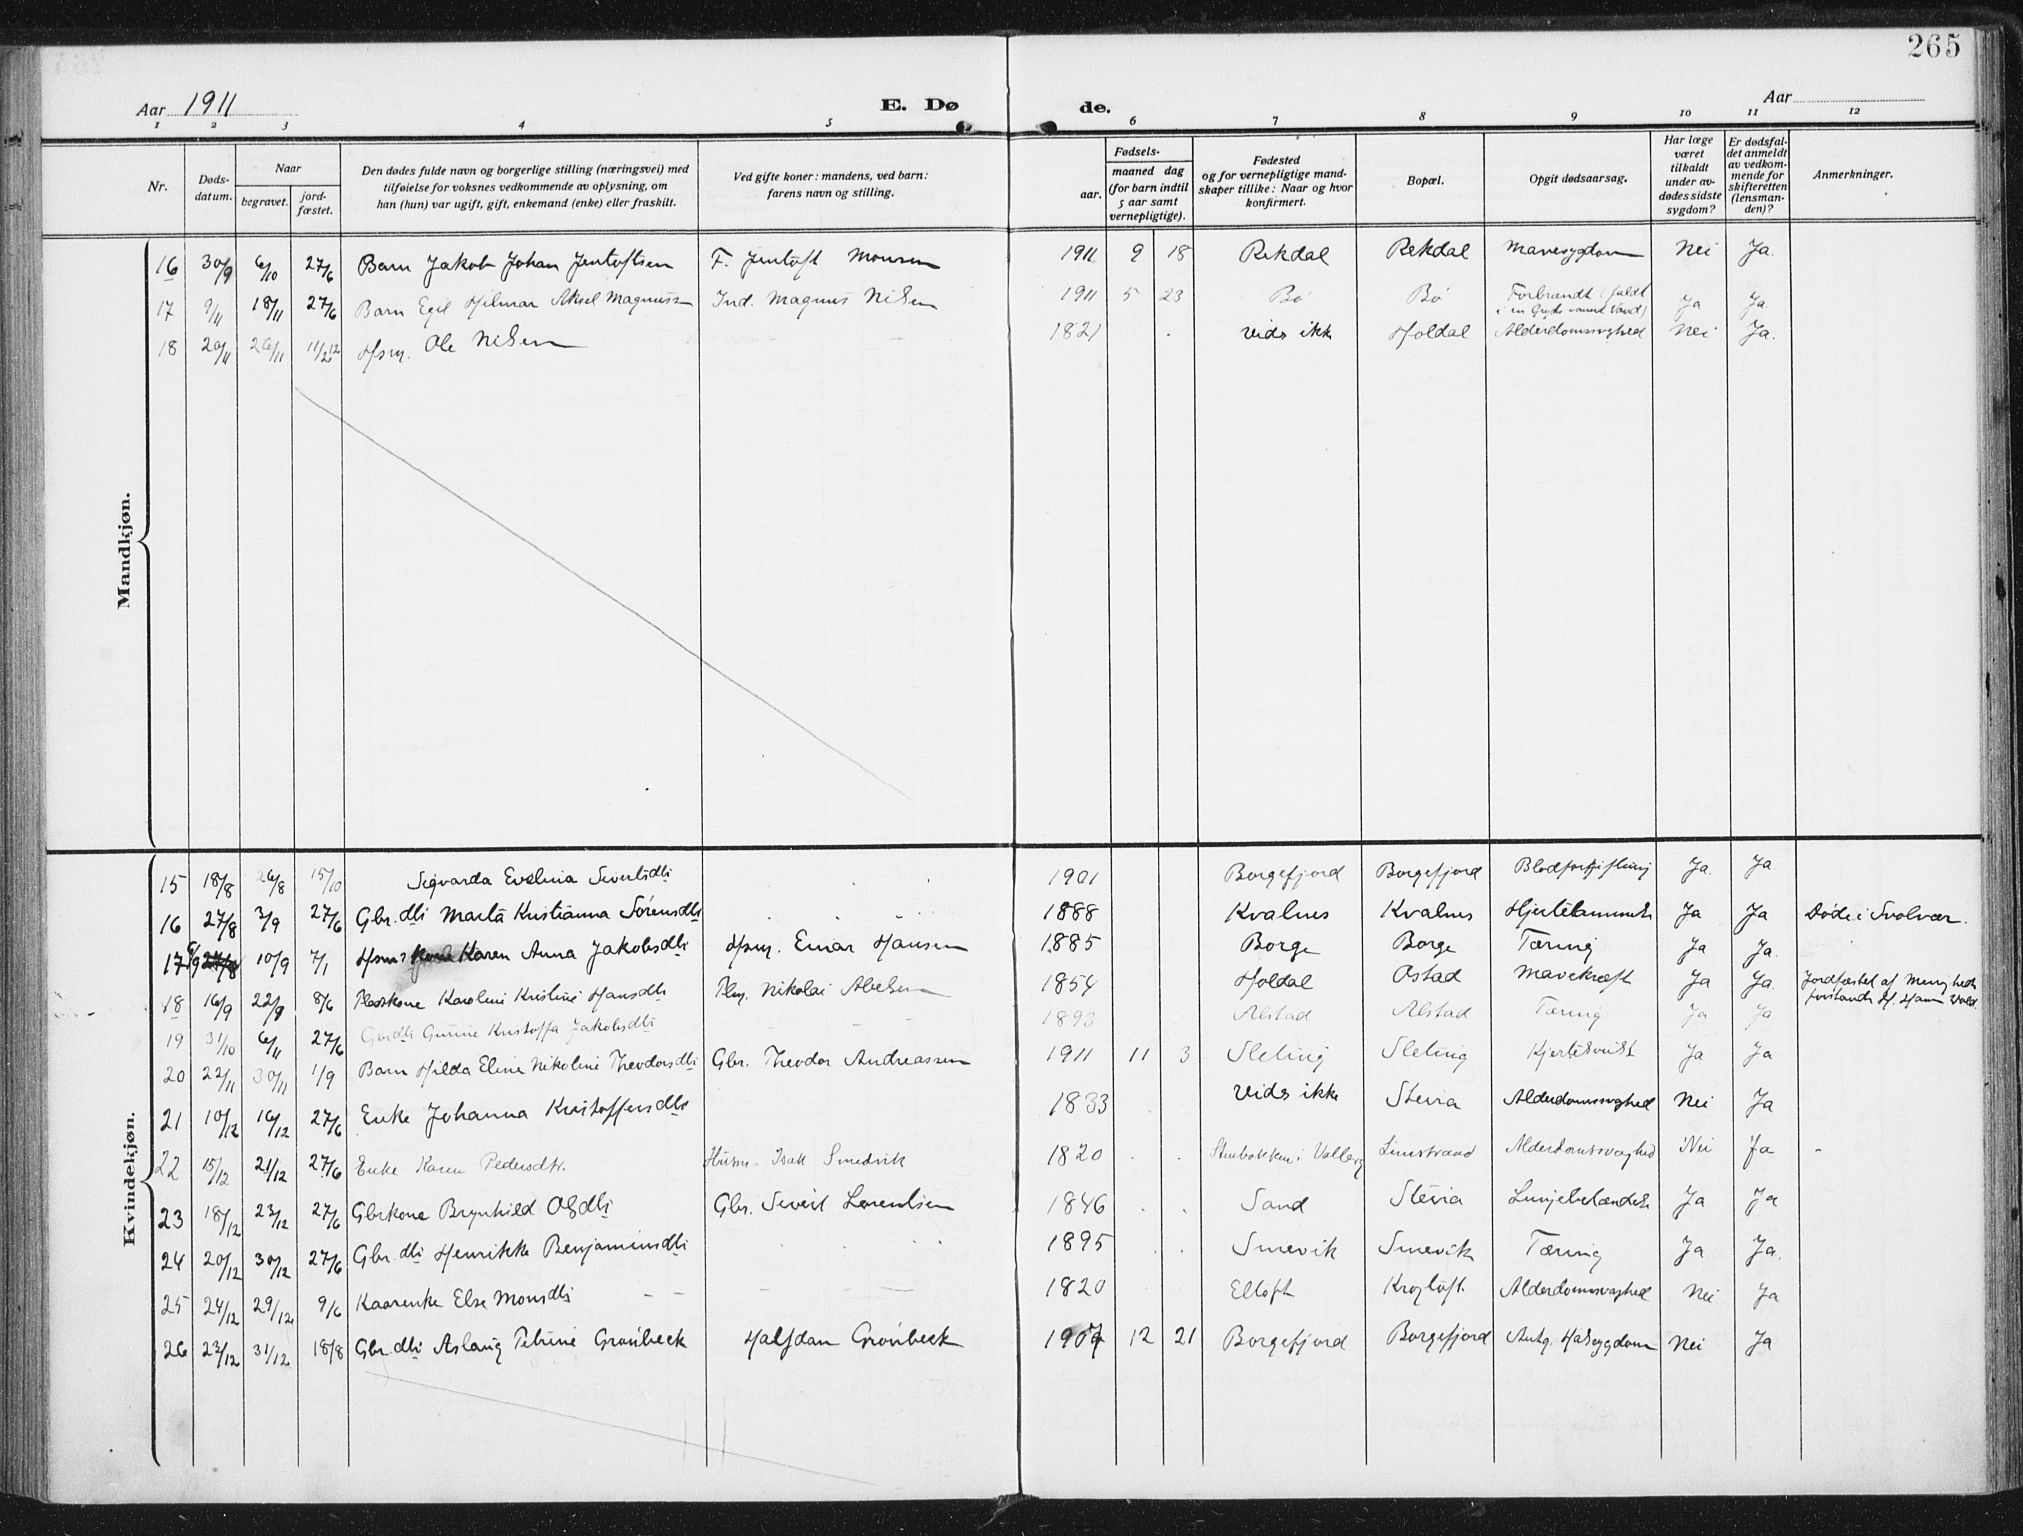 265
Aar 1911
E. Dø de.
Aar
1 2 3 4 5 6 7 8 9 10 11 12
Nr.
Døds-datum.
Naar
begravet.
jord-fæstet.
Den dødes fulde navn og borgerlige stilling (næringsvei) med tilføielse for voksnes vedkommende av oplysning, om han (hun) var ugift, gift, enkemand (enke) eller fraskilt.
Ved gifte koner: mandens, ved barn: farens navn og stilling.
Fødsels-
aar.
maaned dag
(for barn indtil 5 aar samt vernepligtige).
Fødested og for vernepligtige mandskaper tillike: Naar og hvor konfirmert.
Bopæl.
Opgit dødsaarsag.
Har læge været tilkaldt under avdødes sidste sygdom?
Er dødsfaldet anmeldt av vedkommende for skifteretten (lensmanden)?
Anmerkninger.
Mandkjøn.
16 30/9 6/10 27/6 Barn Jakob Johan Jentoftsen F. Jentoft Monsen 1911 9 18 Rekdal Rekdal Mavesygdom Nei Ja.
17 9/11 18/11 27/6 Barn Egil Hilmar Aksel Magnussen Ind. Magnus Nilsen 1911 5 23 Bø Bø Forbrændt (faldt i en Gryde varmt Vand) Ja Ja
18 20/11 26/11 11/2 12 Hsm. Ole Nilsen 1821 vides ikke Holdal Alderdomssvaghed Nei Ja.
Kvindekjøn.
15 18/8 26/8 15/10 Sigvarda Evelina Sivertsdtr 1901 Borgefjord Borgefjord Blodforgiftning Ja. Ja
16 27/8 2/9 27/6 Gbr.dtr Marta Kristianna Sörensdtr 1888 Kvalnes Kvalnes Hjertelammelse Ja Ja Döde i Svolvær.
17 6/9 27/8 10/9 7/1 Hsms Kone Karen Anna Jakobsdtr Hsm. Einar Hansen 1885 Borge Borge Tæring Ja Ja.
18 16/9 22/9 8/6 Pladskone Karoline Kristine Hansdtr Plm. Nikolai Abelsen 1854 Holdal Ostad Mavekræft Ja Ja. Jordfæstet af Menigheds forstander H. Hans Vold.
19 31/10 6/11 27/6 Gbrdtr Gunine Kristoffa Jakobsdtr 1893 Alstad Alstad Tæring Ja Ja
20 22/11 30/11 1/9 Barn Hilda Eline Nikoline Theodorsdtr Gbr. Theodor Andreassen 1911 11 3 Sleting Sleting Hjertesvikt Ja Ja
21 10/12 16/12 27/6 Enke Johanna Kristoffersdtr 1833 vides ikke Steira Alderdomssvaghed Nei Ja
22 15/12 21/12 27/6 Enke Karen Pedersdtr. Husm. Isak Smedvik 1820 Stenbakken i Valberg Limstrand Alderdomssvaghed Nei Ja
23 18/12 23/12 27/6 Gbrkone Brynhild Olsdtr Gbr. Sivert Lorentsen 1846 Sand Steira Lungebetændelse Ja Ja
24 20/12 30/12 27/6 Gbr.dtr Henrikke Benjaminsdtr 1895 Smevik Smevik Tæring Ja Ja.
25 24/12 29/12 9/6 Kaarenke Else Monsdtr 1820 Elloft Krogtoft Alderdomssvaghed Nei Ja
26 23/12 31/12 18/8 Gbr.dtr Aslaug Petrine Grönbeck Halfdan Grönbeck 1907 12 21 Borgefjord Borgefjord Antg. Halssygdom Nei Ja